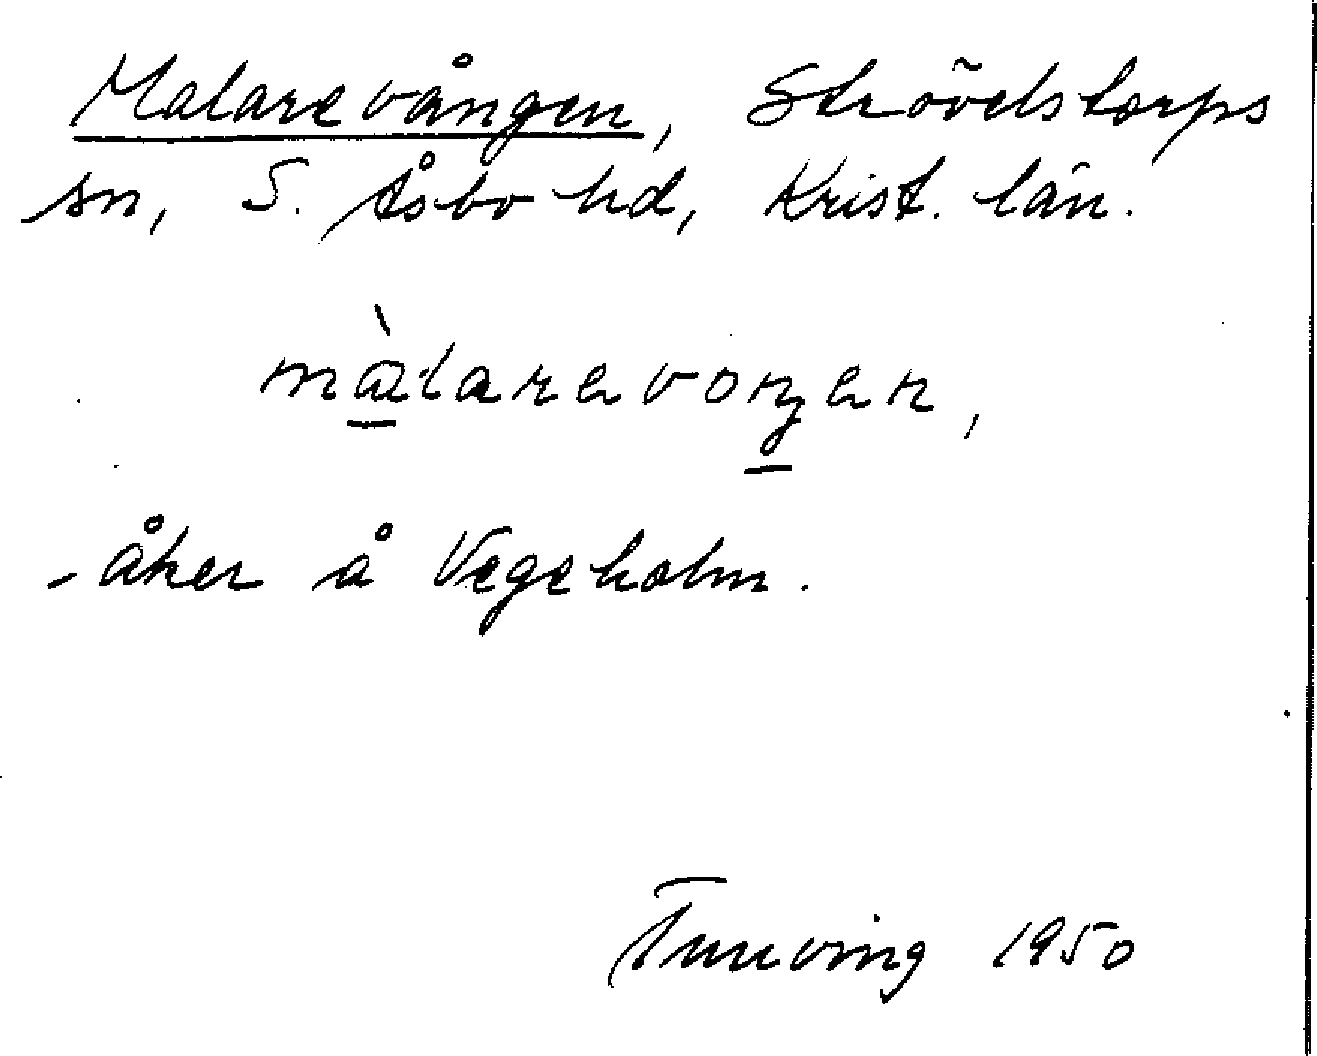 Malarevången, Strövelstorps
sn, S. Åsbo hd, Krist. län.
mà̱larevoŋen,
- åker å Vegeholm.
Tuneving 1950